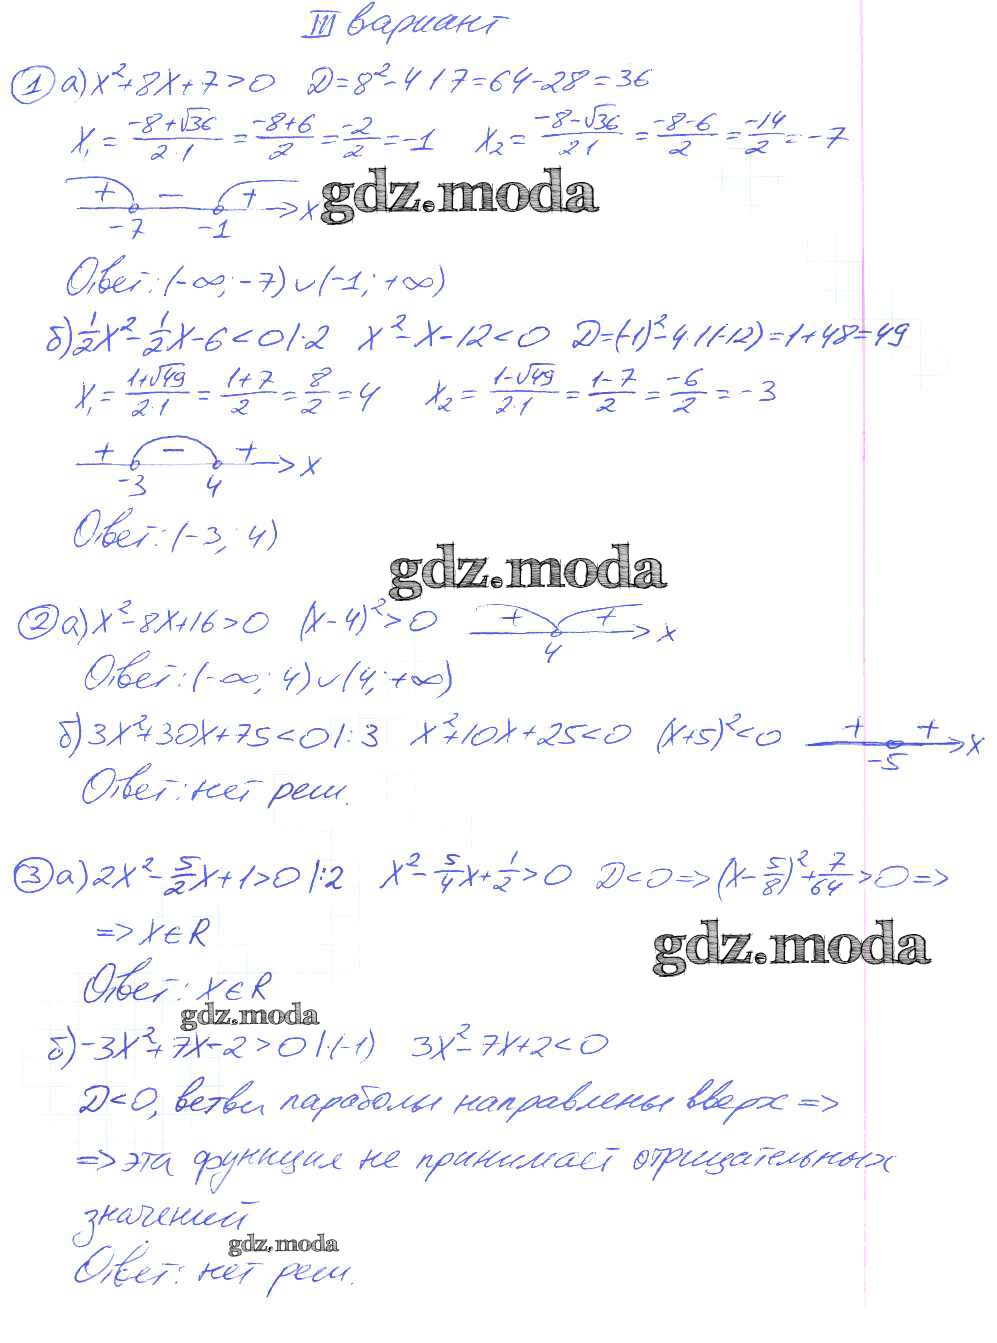 III вариант
① а) x²+8x+7>0 D=8²-4·1·7=64-28=36
x₁=(-8+√36)/(2·1)=(-8+6)/2=-2/2=-1 x₂=(-8-√36)/(2·1)=(-8-6)/2=-14/2=-7
+ − + x
-7 -1
gdz.moda
Ответ: (-∞; -7)∪(-1; +∞)
б) 1/2x²-1/2x-6<0 |·2 x²-x-12<0 D=(-1)²-4·1·(-12)=1+48=49
x₁=(1+√49)/(2·1)=(1+7)/2=8/2=4 x₂=(1-√49)/(2·1)=(1-7)/2=-6/2=-3
+ − + x
-3 4
Ответ: (-3; 4)
gdz.moda
② а) x²-8x+16>0 (x-4)²>0 + + x
4
Ответ: (-∞; 4)∪(4; +∞)
б) 3x²+30x+75<0 |:3 x²+10x+25<0 (x+5)²<0 + + x
-5
Ответ: нет реш.
③ а) 2x²-5/2x+1>0 |:2 x²-5/4x+1/2>0 D<0=>(x-5/8)²+7/64>0=>
=> x∈R
gdz.moda
Ответ: x∈R
gdz.moda
б) -3x²+7x-2>0 |·(-1) 3x²-7x+2<0
D<0, ветви параболы направлены вверх =>
=> эта функция не принимает отрицательных
значений
gdz.moda
Ответ: нет реш.